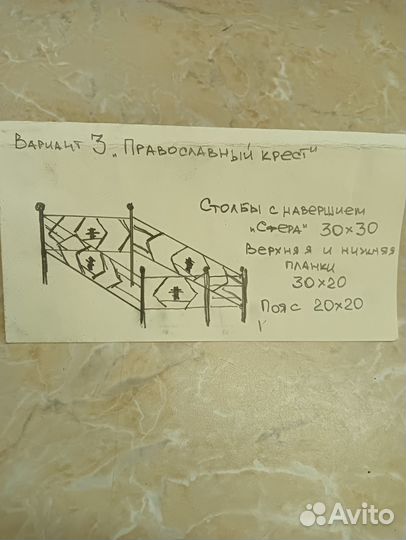 Вариант 3 „Православный крест"
Столбы с навершием
„Сфера" 30×30
Верхняя и нижняя
планки
30×20
Пояс 20×20
Avito